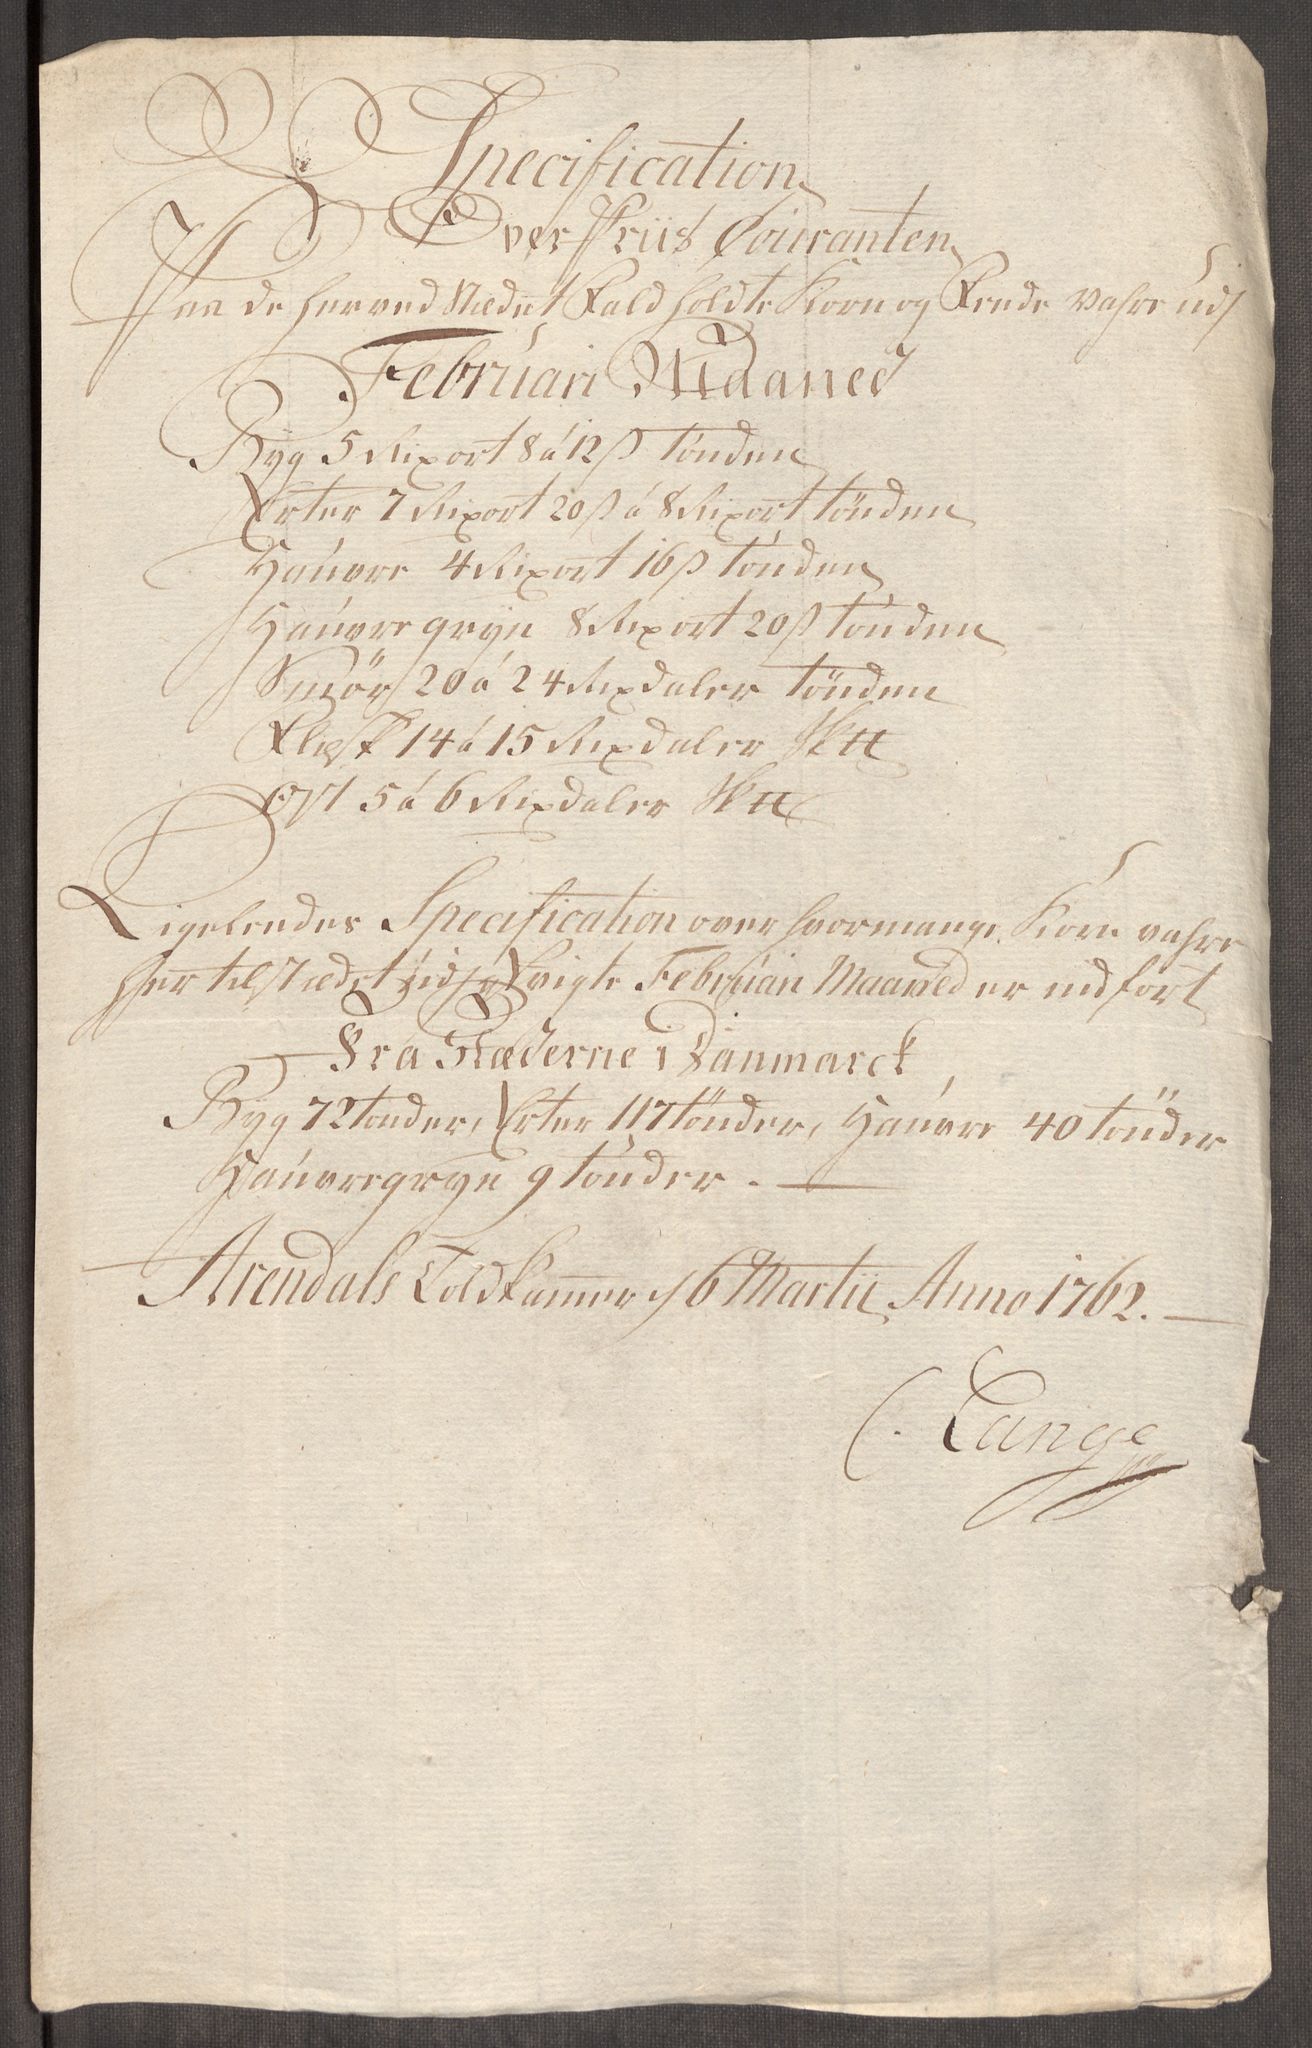 Specification
Over Priis Couranten
Paa de her ved Stædet Fald holdte Korn og Fende Vahre udj
Februari Maaned
Byg 5 Rixort 8 á 12 ß tönden
Erter 7 Rixort 20 ß á 8 Rixort tönden
Haúvre 4 Rixort 16 ß tönden
Haúvregryn 8 Rixort 20 ß tönden
Smör 20 á 24 Rixdaler tönden
Flesk 14 á 15 Rixdaler Sk℔
Ost 5 á 6 Rixdaler Sk℔
Ligeleedes Specification over hvormange Korn vahre
her til Stædet udj Februari Maaned er indfört
Fra Stæderne i Danmarck
Byg 72 tönder, Erter 117 tönder, Haúvre 40 tönder
Haúvregryn 9 tönder. —
Arendals Toldkammer d 6 Martii Anno 1762. —
C. Lange